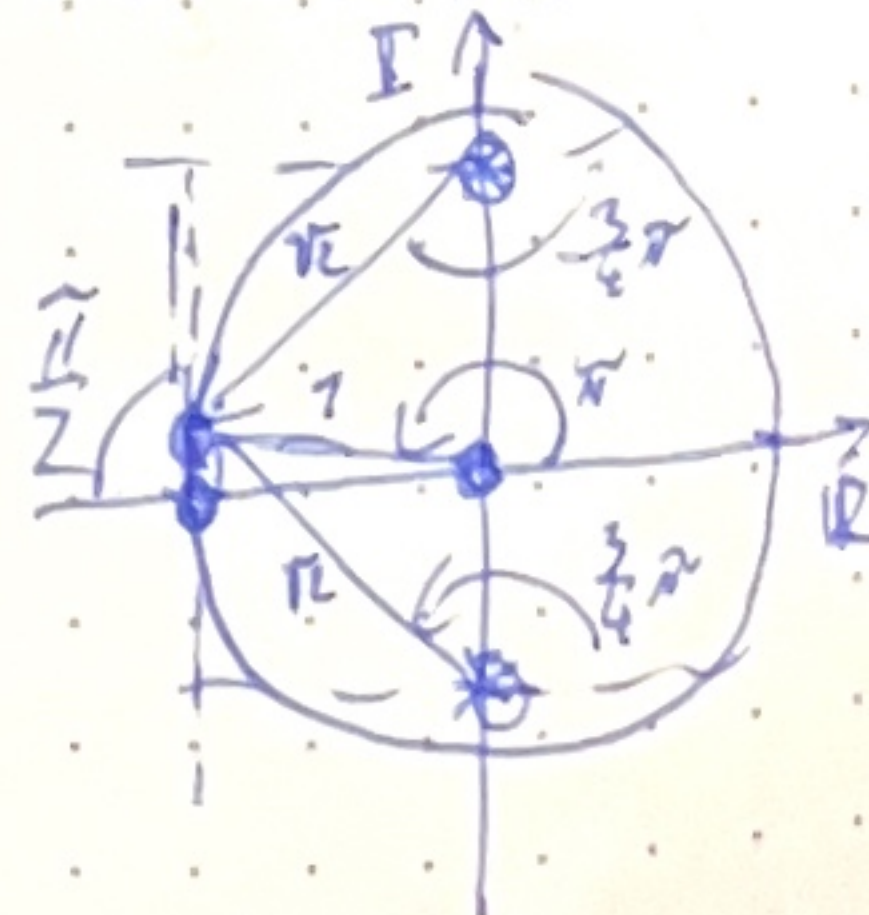 I
√2
-3/4 π
π/2
1
π
R
√2
3/4 π